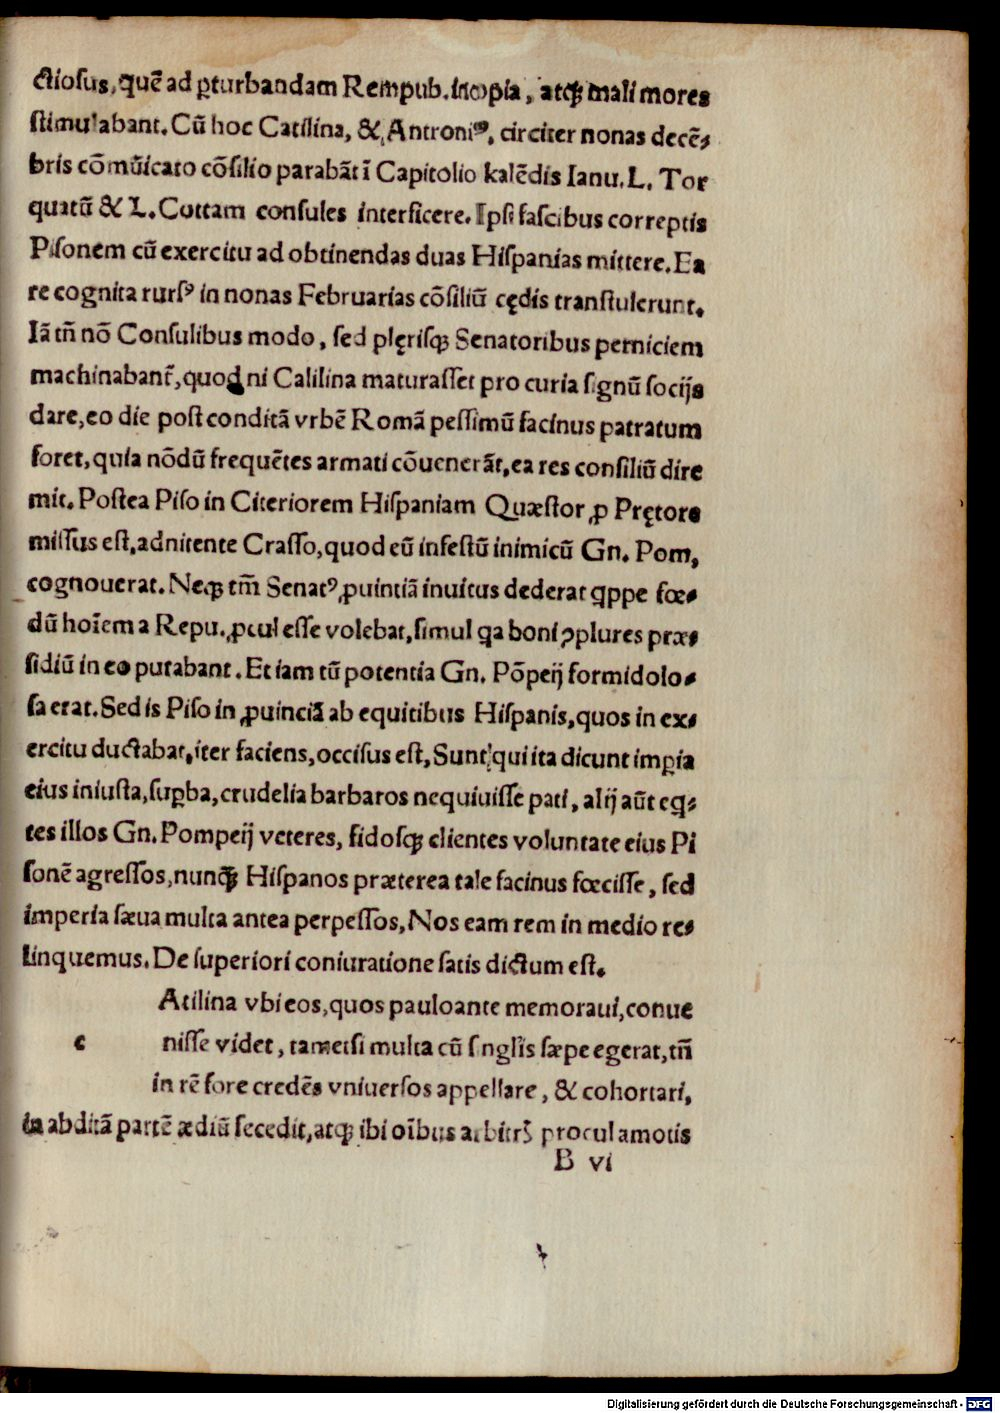 ctiosus, quē ad ꝑturbandam Rempub. inopia, atqꝫ mali mores
stimulabant. Cū hoc Catilina, & Antroniꝰ, circiter nonas decē-
bris cōmūicato cōsilio parabāt ī Capitolio kalēdis Ianu. L. Tor
quatū & L. Cottam consules interficere. Ipsi fascibus correptis
Pisonem cū exercitu ad obtinendas duas Hispanias mittere. Ea
re cognita rursꝰ in nonas Februarias cōsiliū cędis transtulerunt.
Iā tñ nō Consulibus modo, sed plęrisqꝫ Senatoribus perniciem
machinabant̄, quod ni Calilina maturasset pro curia signū socijs
dare, eo die post conditā vrbē Romā pessimū facinus patratum
foret, quia nōdū frequētes armati cōuenerāt, ea res consiliū dire
mit. Postea Piso in Citeriorem Hispaniam Quæstor ꝓ Prętore
missus est, adnitente Crasso, quod eū infestū inimicū Gn. Pom,
cognouerat. Neqꝫ tm̄ Senatꝰ ꝓuintiā inuitus dederat qppe fœ-
dū hoīem a Repu. ꝓcul esse volebat, simul qa boni ꝯplures præ-
sidiū in eo putabant. Et iam tū potentia Gn. Pōpeij formidolo-
sa erat. Sed is Piso in ꝓuinciā ab equitibus Hispanis, quos in ex-
ercitu ductabat, iter faciens, occisus est, Sunt qui ita dicunt imꝑia
eius iniusta, suꝑba, crudelia barbaros nequiuisse pati, alij aūt eq-
tes illos Gn. Pompeij veteres, fidosqꝫ clientes voluntate eius Pi
sonē agressos, nunqꝫ Hispanos præterea tale facinus fœcisse, sed
imperia sæua multa antea perpessos, Nos eam rem in medio re-
linquemus. De superiori coniuratione satis dictum est.
Atilina vbi eos, quos pauloante memoraui, conue
c nisse videt, tametsi multa cū singlis sæpe egerat, tñ
in rē fore credēs vniuersos appellare, & cohortari,
in abditā partē ædiū secedit, atqꝫ ibi oībus arbitrꝭ procul amotis
B vi
Digitalisierung gefördert durch die Deutsche Forschungsgemeinschaft - DFG